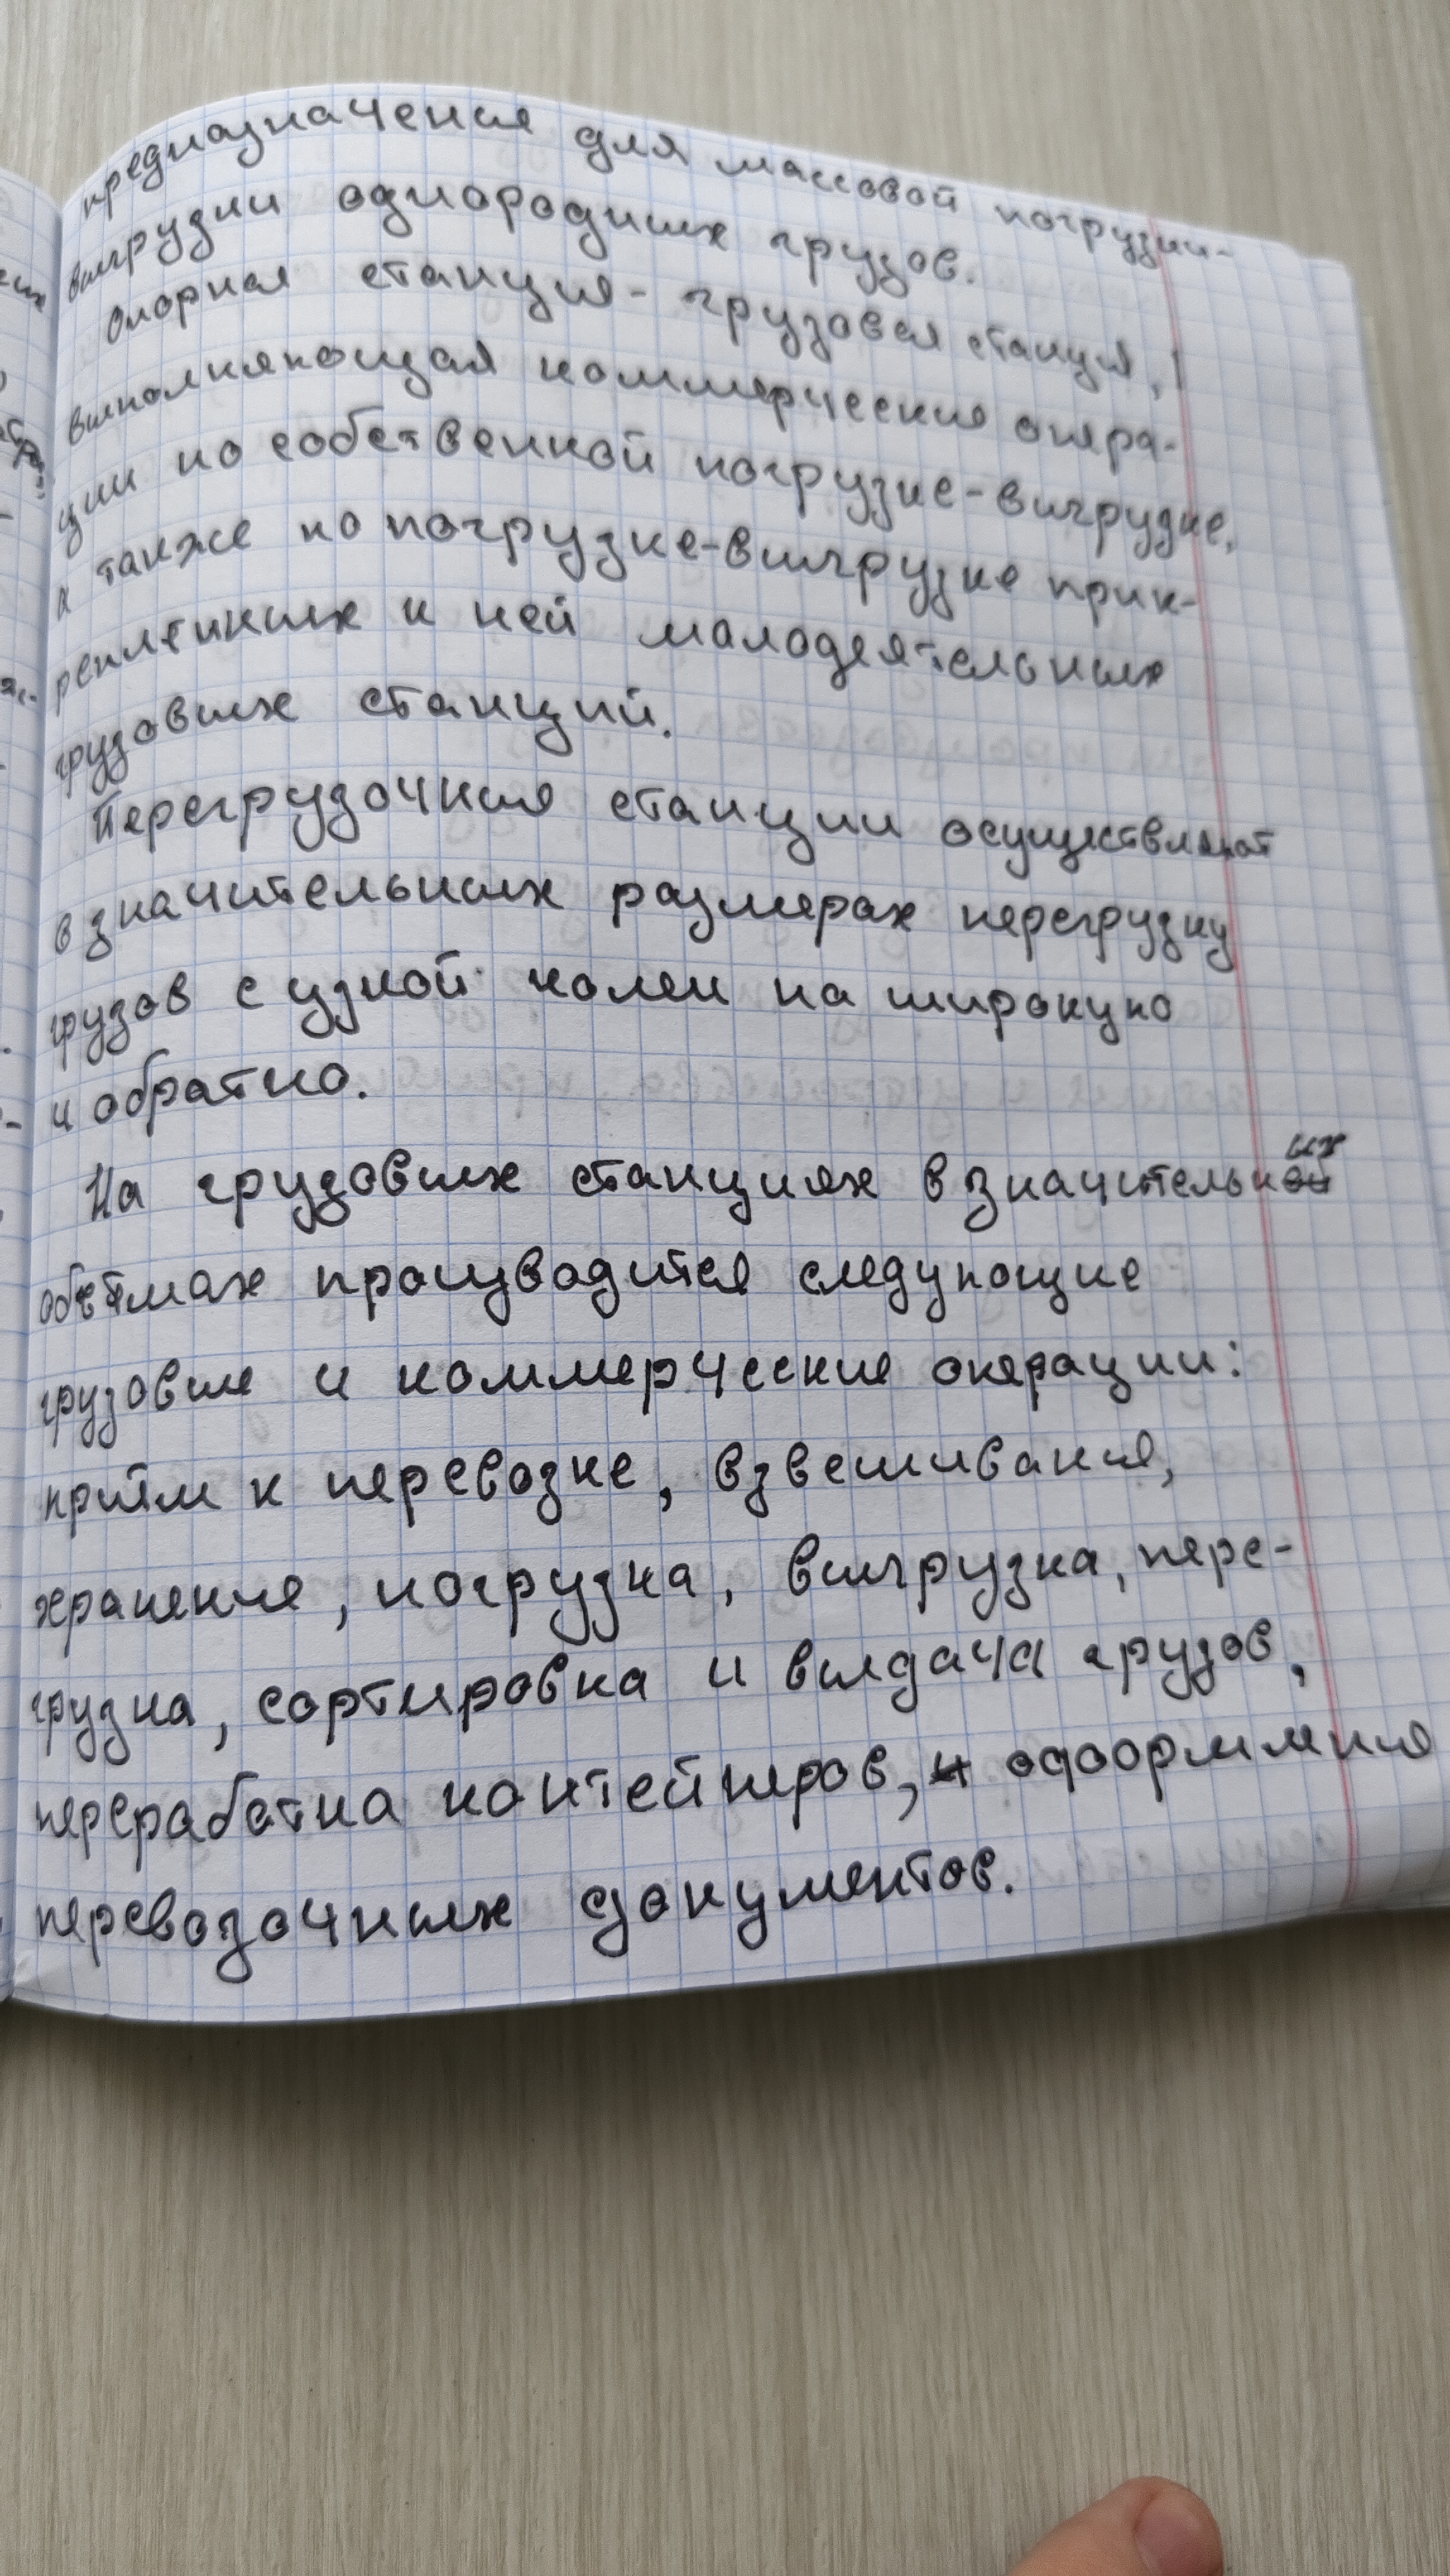 предназначение для массовой погрузки-
выгрузки однородных грузов.
Опорная станция - грузовая станция,
выполняющая коммерческие опера-
ции по собственной погрузке-выгрузке,
а также по погрузке-выгрузке прик-
реплённых к ней малодеятельных
грузовых станций.
Перегрузочные станции осуществляют
в значительных размерах перегрузку
грузов с узкой колеи на широкую
и обратно.
На грузовых станциях в значительных
объёмах производится следующие
грузовые и коммерческие операции:
приём к перевозке, взвешивание,
хранение, погрузка, выгрузка, пере-
грузка, сортировка и выдача грузов,
переработка контейнеров, оформление
перевозочных документов.